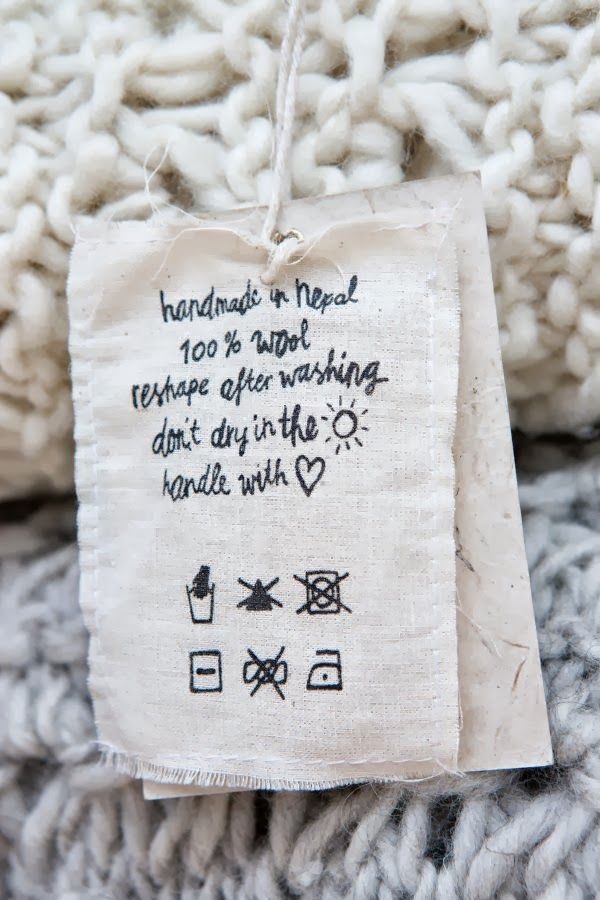 handmade in nepal
100% wool
reshape after washing
don't dry in the
handle with